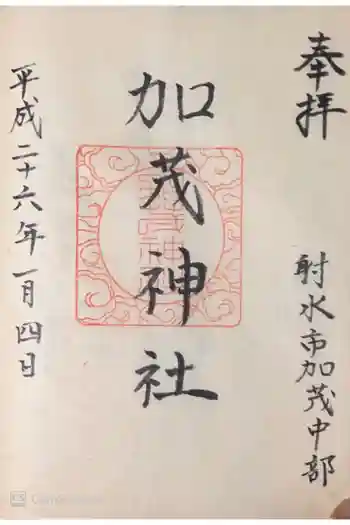 奉拝
射水市加茂中部
加茂神社
平成二十六年一月四日